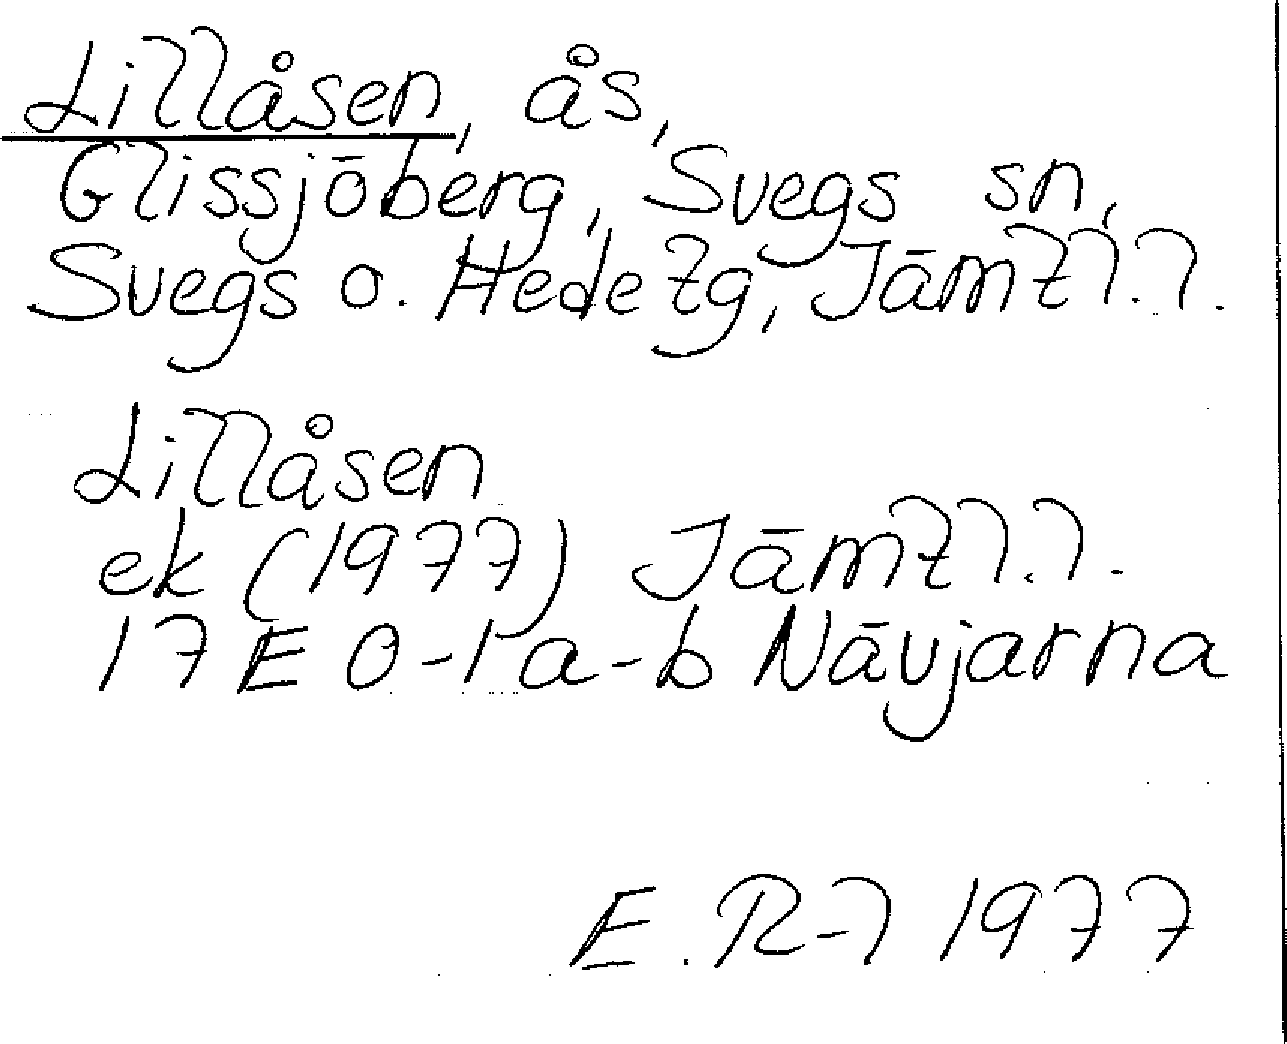 Lillåsen, ås,
Glissjöberg, Svegs sn,
Svegs o. Hede tg, Jämtl. l.
Lillåsen
ek (1977) Jämtl. l.
17 E 0-1 a-b Nävjarna
E. R-l 1977